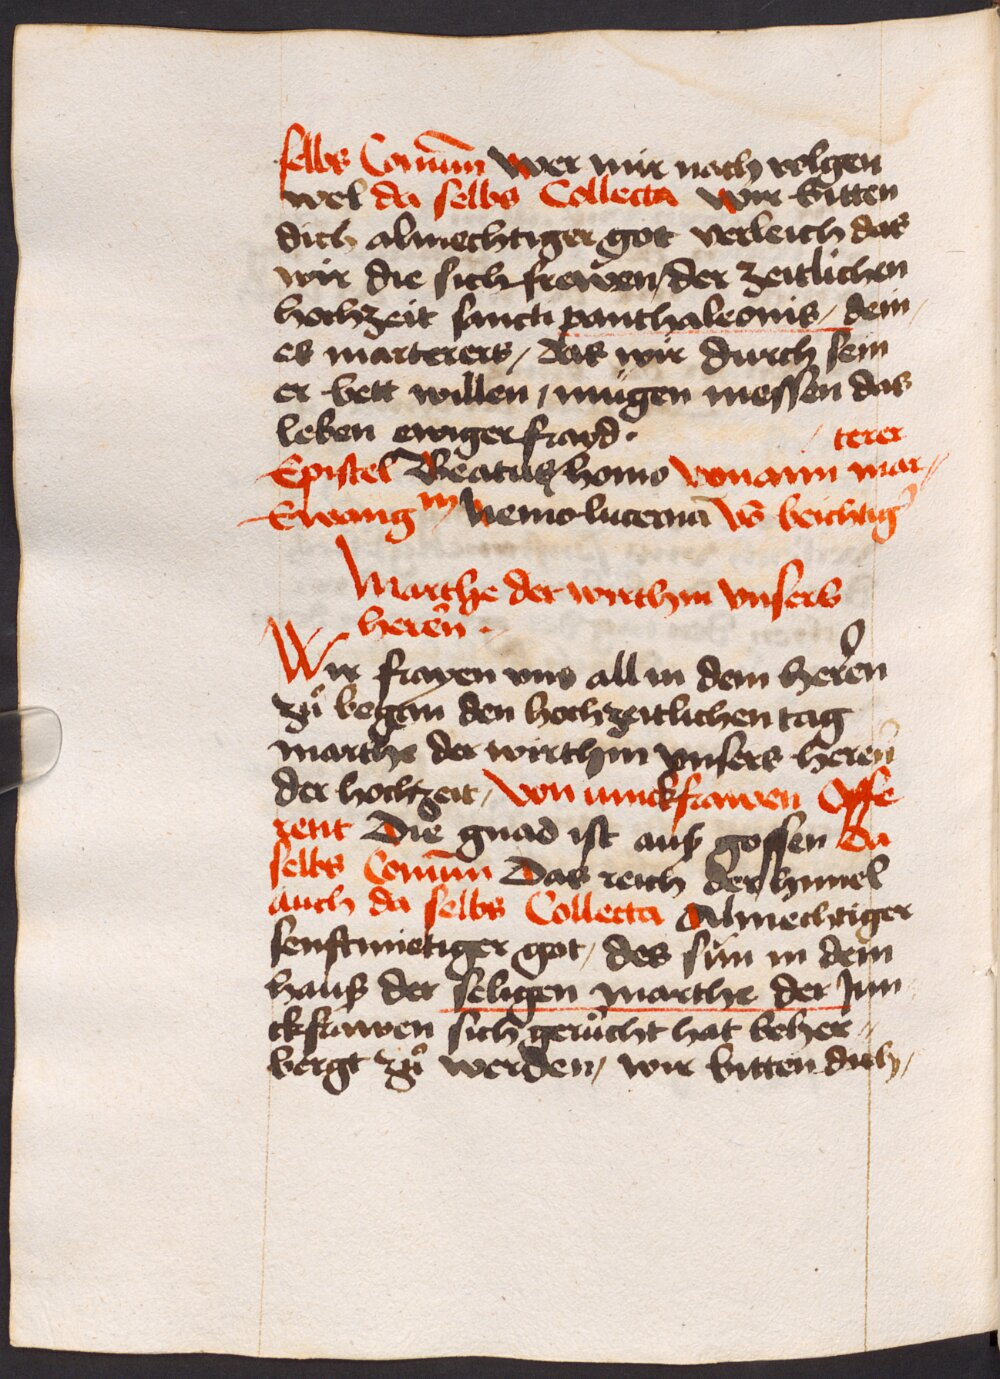 selbs Comūm Wer mir nach volgen
wel da selbs Collecta Wir bitten
dich almechtiger got verleich das
wir die sich frewen / der zeitlichen
hochzeit sancti panthaleonis / dein /
es marterers / das wir durch sein
er bett willen / mügen niessen das
leben ewiger frayd ·
/ terer
Epistel Beatus homo von aim mar //
Ewangm Nemo lucerna Vō beichtig̉
Marthe der wirthin vnsers
herēn ·
Wir frayen vns all in dem herēn
zů began den hochzeitlichen tag
marthe der wirthin vnsers herēn
der hochzeit / Von iunckfrawen Offe
rent Die gnad ist auß gossen Da
selbs Comūm Das reich der himel
auch da selbs Collecta Almechtiger
senftmietiger got / des sun in dem
hauß der seligen marthe der Jun
ckfrawen sich gerücht hat beher //
bergt zů werden / wir bitten dich /